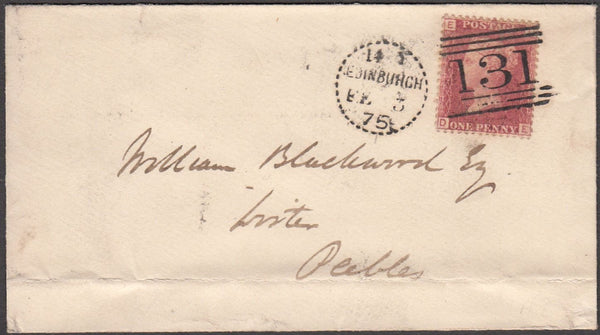 E POSTAGE
131
ONE PENNY
D E
EDINBURGH
FE 3
75
William Blackwood Esq.
Writer
Peebles